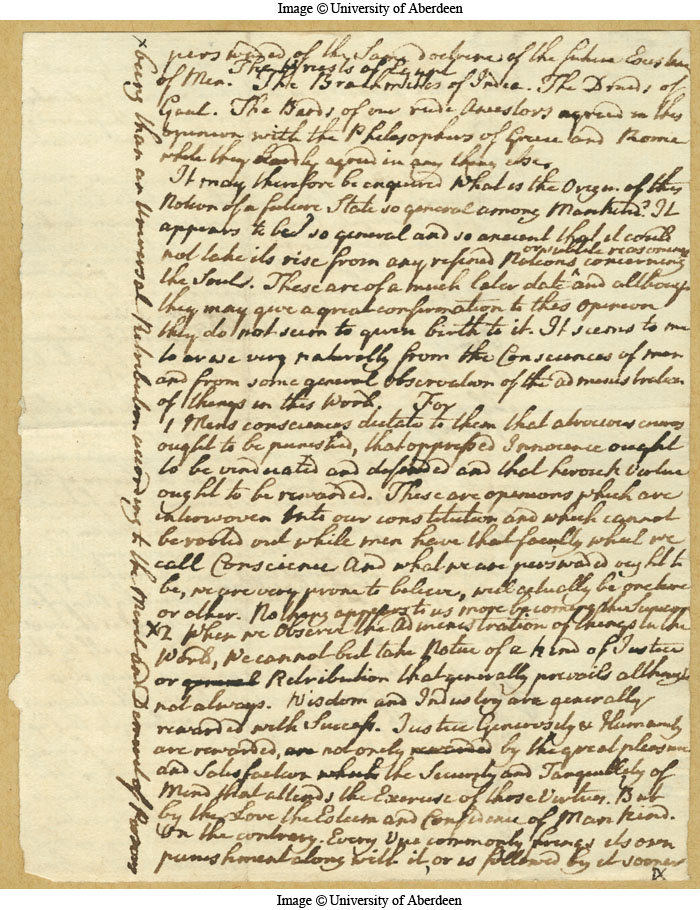 Image © University of Aberdeen
perswaded of the Same doctrine of the future Existence
of Men. The Priests of Egypt The Brachmines of India. The Druids of
Gaul. The Bards of our rude Ancestors agreed in this
opinion with the Philosophers of Greece and Rome
while they hardly agreed in any thing else.
It may therefore be enquired What is the Origin of this
Notion of a future State so general among Mankind? It
appears to be so general and so ancient that it could
not take its rise from any refined Notions or subtile reasonings concerning
the Souls. These are of a much later date and although
they may give a great confirmation to this Opinion
they do not seem to given birth to it. It seems to me
to arise very naturally from the Consciences of men
and from some general Observation of the administration
of things in this World. For
1 Mens consciences dictate to them that atrocious crimes
ought to be punished, that oppressed Innocence ought
to be vindicated and defended and that heroick Virtue
ought to be rewarded. These are opinions which are
interwoven into our constitution and which cannot
be rooted out while men have that faculty which we
call Conscience And what we are perswaded ought to
be, we are very prone to believe, will actually be one time
or other. Nothing appears to us more becoming the Supreme
X2 When we Observe the Administration of things in the
World, We cannot but take Notice of a kind of Justice
or general Retribution that generally prevails although
not always. Wisdom and Industry are generally
rewarded with Success. Justice Generosity & Humanity
are rewarded, are not onely rewarded by the great pleasure
and Satisfaction which the Security and Tranquillity of
Mind that attends the Exercise of those Virtues. But
by the Love the Esteem and Confidence of Mankind.
On the contrary. Every Vice commonly brings its own
punishment along with it, or is followed by it sooner
X being than an Universal Retribution according to the Merit and Demerit of Persons
Image © University of Aberdeen